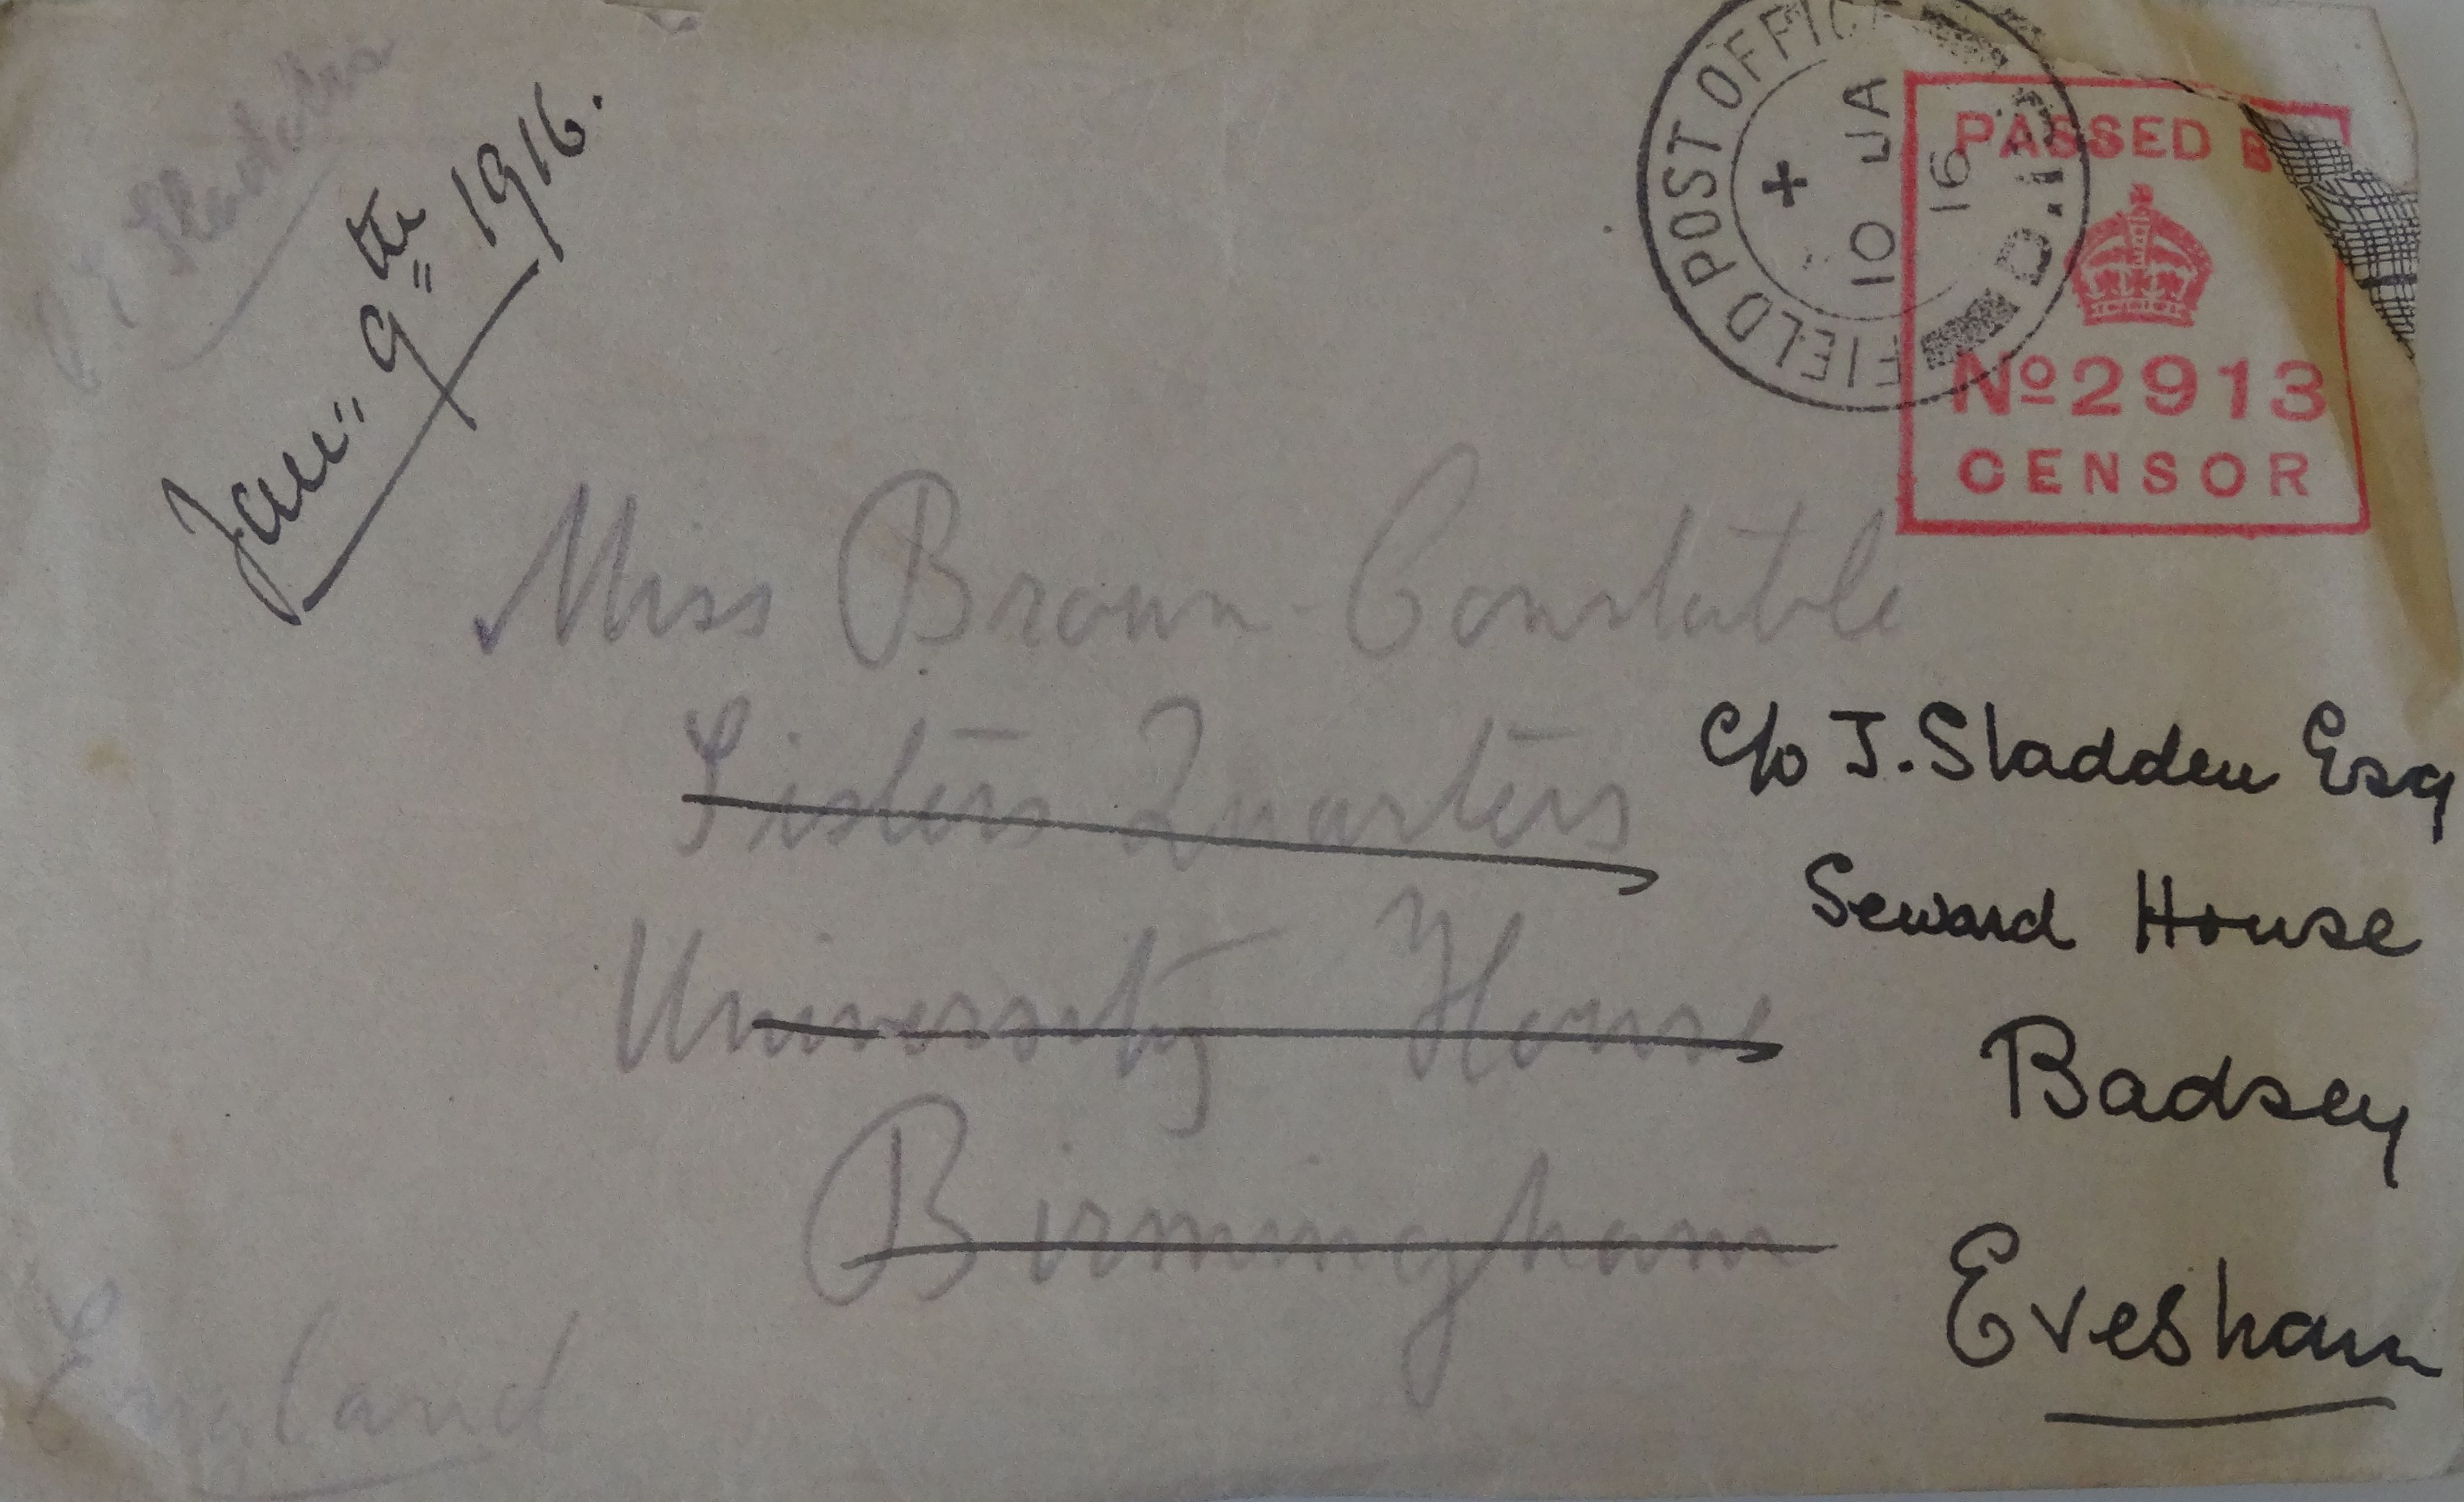 Sladden
Jan. 9th 1916.
FIELD POST OFFICE
D.
10 JA
16
PASSED
No 2913
CENSOR
Miss Brown-Constable
Sisters Quarters
University House
Birmingham
England
c/o J. Sladden Esq
Seward House
Badsey
Evesham